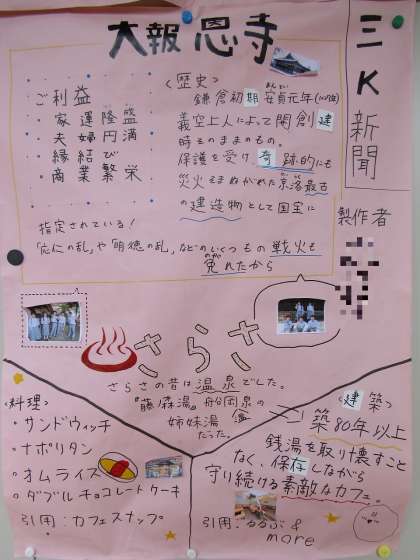 大報恩寺
三K新聞
製作者
ご利益
・家運隆盛
・夫婦円満
・縁結び
・商業繁栄
〈歴史〉
鎌倉初期安貞元年
義空上人によって開創建
時そのままのもの。
保護を受け、奇跡的にも
災火をまぬがれた京洛最古
の建造物として国宝に
指定されている!
「応仁の乱」や「明徳の乱」などのいくつもの戦火も
免れたから
さらさ
さらさの昔は温泉でした。
『藤ノ森湯』船岡温泉の
姉妹湯
だった。
〈料理〉
・サンドウィッチ
・ナポリタン
・オムライス
・ダブルチョコレートケーキ
引用:カフェスナップ
〈建築〉
築80年以上
銭湯を取り壊すこと
なく、保存しながら
守り続ける素敵なカフェ。
引用:るるぶ &
more